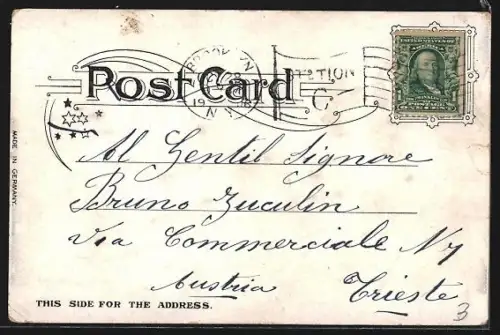 BROOKLYN
STATION
Post Card
19
N.Y.
C
MADE IN GERMANY.
Al Gentil Signore
Bruno Zuculin
Via Commerciale N 7
Austria Trieste
THIS SIDE FOR THE ADDRESS.
3